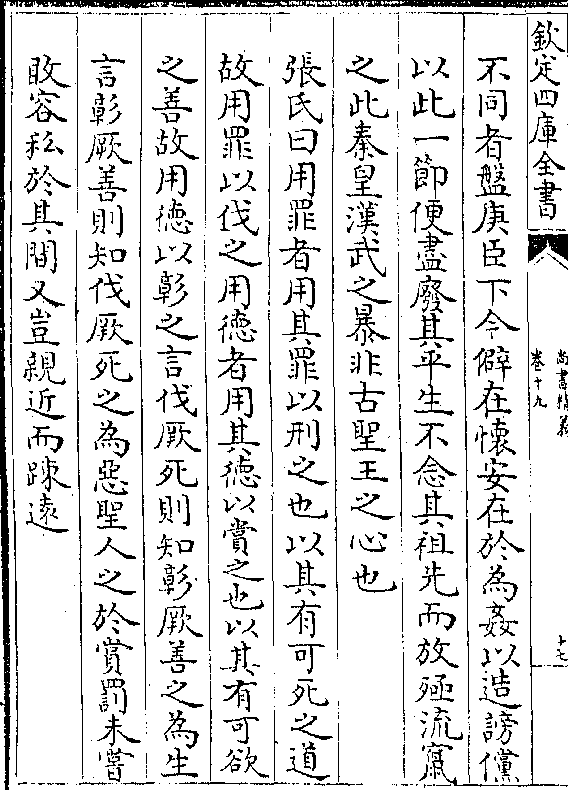 欽定四庫全書
尚書精義
卷十九
十七
不同者盤庚臣下今僻在懷安在於為姦以造謗儻
以此一節便盡廢其平生不念其祖先而放殛流竄
之此秦皇漢武之暴非古聖王之心也
張氏曰用罪者用其罪以刑之也以其有可死之道
故用罪以伐之用德者用其德以賞之也以其有可欲
之善故用德以彰之言伐厥死則知彰厥善之為生
言彰厥善則知伐厥死之為惡聖人之於賞罰未嘗
敢容私於其間又豈親近而踈遠